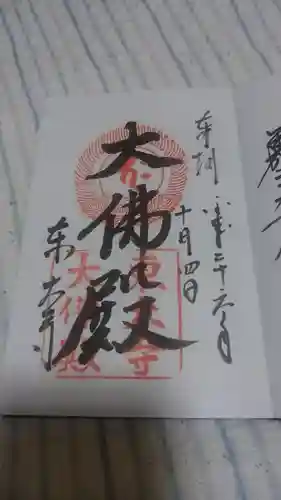 奉拝
平成二十六年
十月四日
大佛殿
東大寺
東大寺
大佛殿